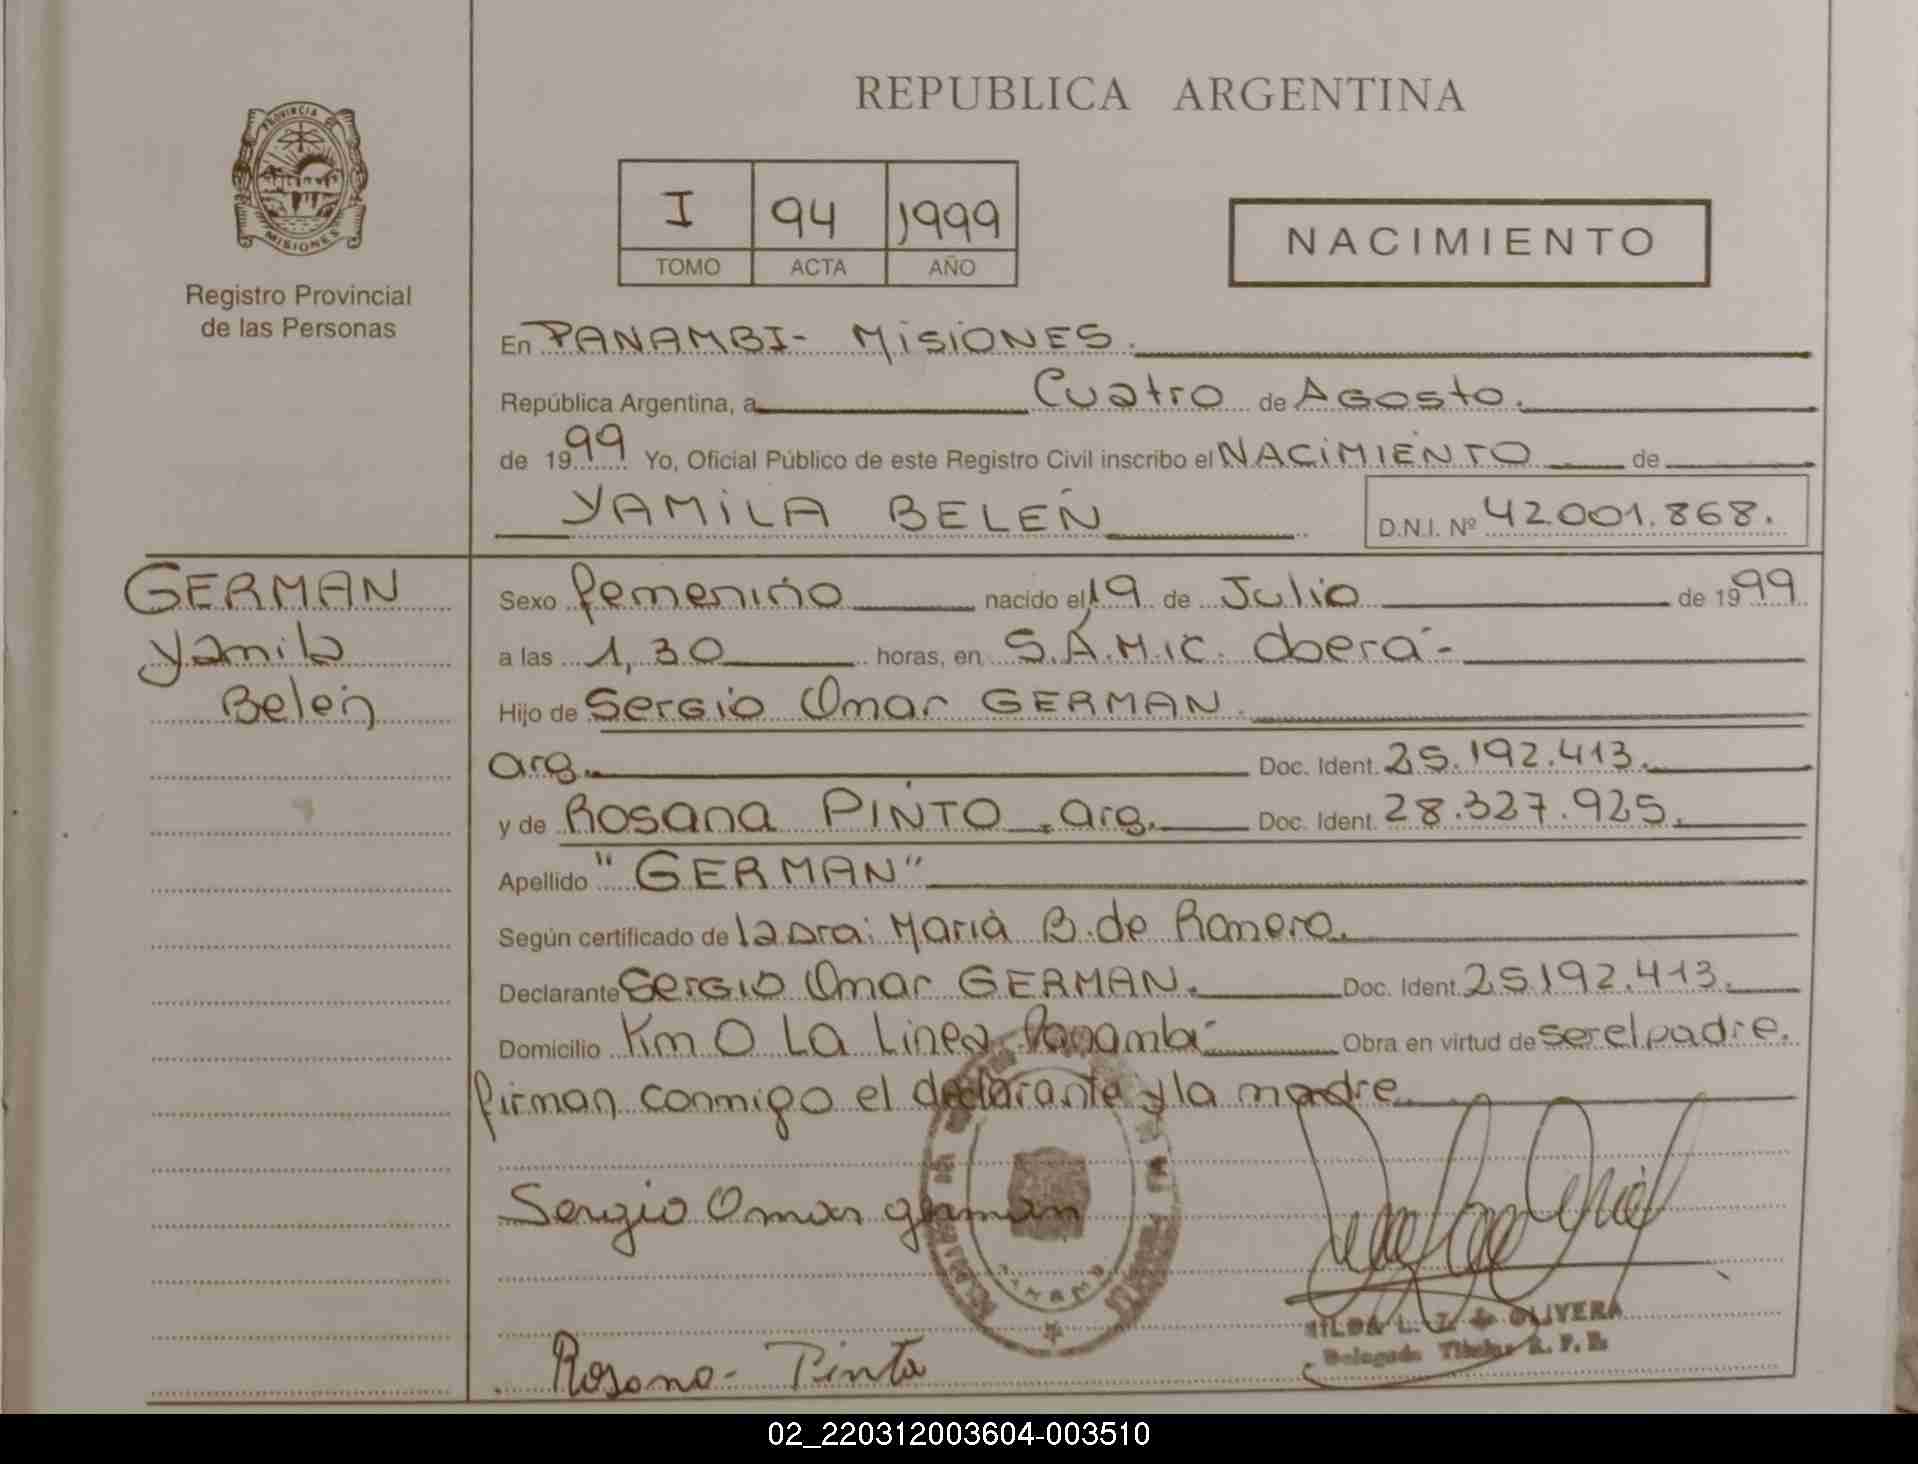 PROVINCIA DE
MISIONES
Registro Provincial
de las Personas
REPUBLICA ARGENTINA
I 94 1999
TOMO ACTA AÑO
NACIMIENTO
En PANAMBI- MISIONES.
República Argentina, a Cuatro de Agosto.
de 1999 Yo, Oficial Público de este Registro Civil inscribo el NACIMIENTO de
YAMILA BELÉN D.N.I. Nº 42.001.868.
GERMAN
Yamila
Belén
Sexo femenino nacido el 19 de Julio de 1999
a las 1,30 horas, en S.A.M.I.C. Oberá-
Hijo de Sergio Omar GERMAN.
arg. Doc. Ident. 25.192.413.
y de Rosana PINTO. arg. Doc. Ident. 28.327.925.
Apellido "GERMAN"
Según certificado de la Dra: María B. de Romero.
Declarante Sergio Omar GERMAN. Doc. Ident. 25.192.413.
Domicilio Km 0 La Linea Panambí- Obra en virtud de ser el padre.
firman conmigo el declarante y la madre
Sergio Omar german
PANAMBI
HILDA L. Z. de OLIVERA
Delegada Titular R. P. P.
Rosana- Pinto
02_220312003604-003510